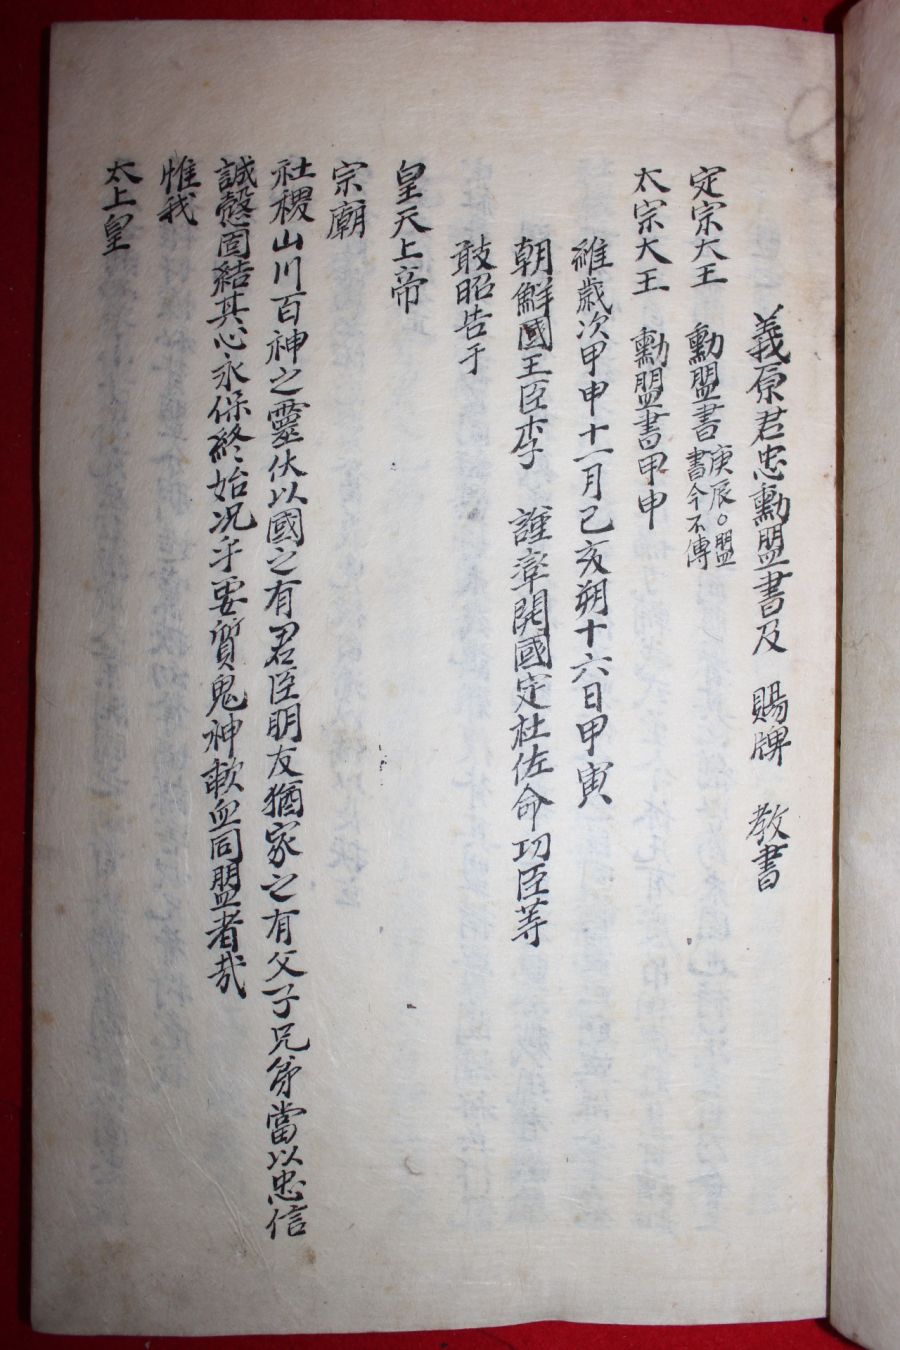 義原君忠勳盟書及 賜牌 敎書
定宗大王 勳盟書 庚辰○盟書今不傳
太宗大王 勳盟書甲申
維歲次甲申十一月己亥朔十六日甲寅
朝鮮國王臣李 謹率開國定社佐命功臣等
敢昭告于
皇天上帝
宗廟
社稷山川百神之靈伏以國之有君臣朋友猶家之有父子兄弟當以忠信
誠慤固結其心永保終始况乎要質鬼神歃血同盟者哉
惟我
太上皇